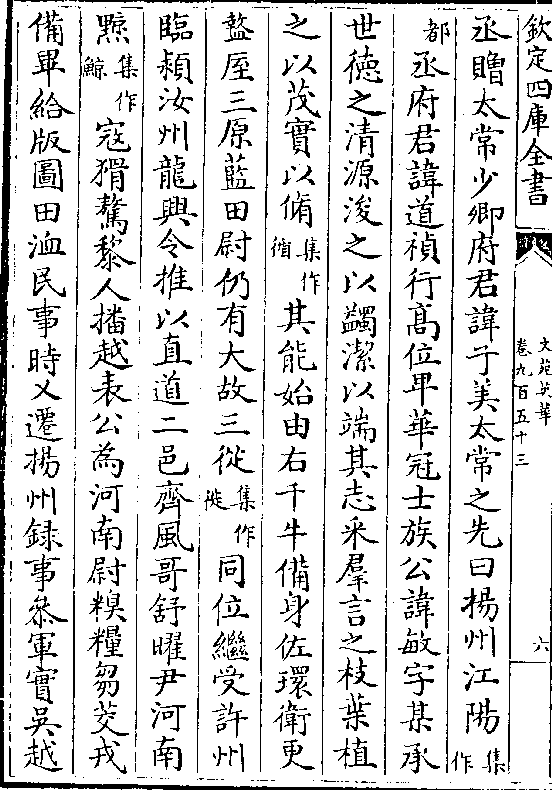 欽定四庫全書
文苑英華
卷九百五十三
六
丞贈太常少卿府君諱子美太常之先曰揚州江陽集作
都丞府君諱道禎行髙位甲華冠士族公諱敏字某承
世徳之清源浚之以蠲潔以端其志采羣言之枝葉植
之以茂實以脩集作循其能始由右千牛備身佐環衛更
盩厔三原藍田尉仍有大故三從集作徙同位繼受許州
臨潁汝州龍興令推以直道二邑齊風哥舒曜尹河南
黥集作鯨寇猾驁黎人播越表公為河南尉糗糧芻茭戎
備畢給版圖田洫民事時乂遷揚州録事叅軍實吳越